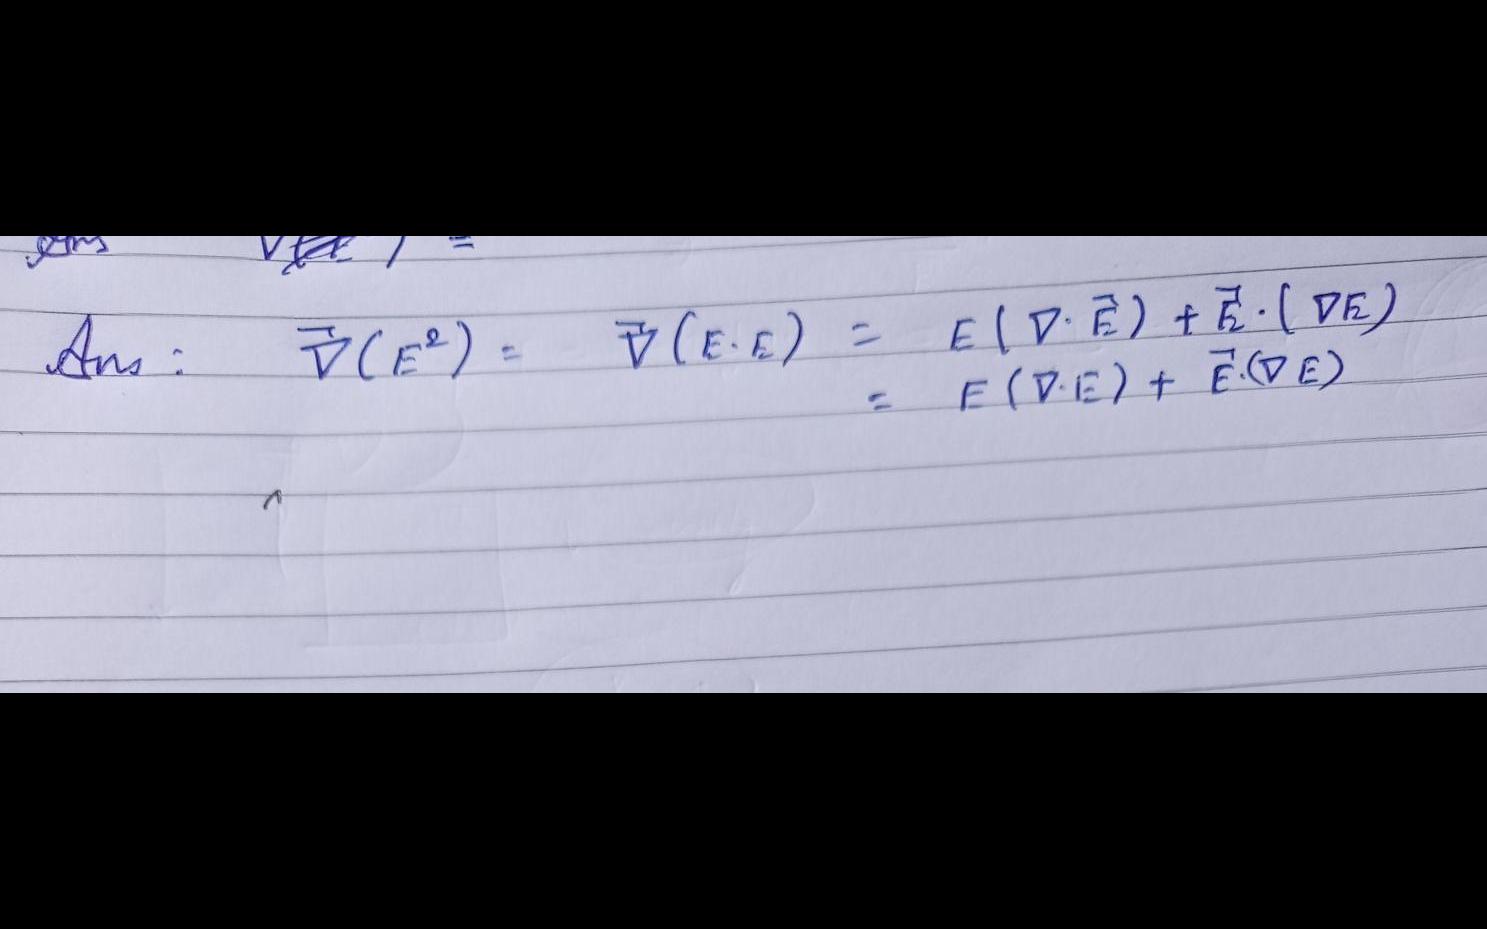 Ans ∇( ) =
Ans : ∇⃗(E²) = ∇⃗(E·E) = E(∇·E⃗) + E⃗·(∇E)
= E(∇·E) + E⃗·(∇E)